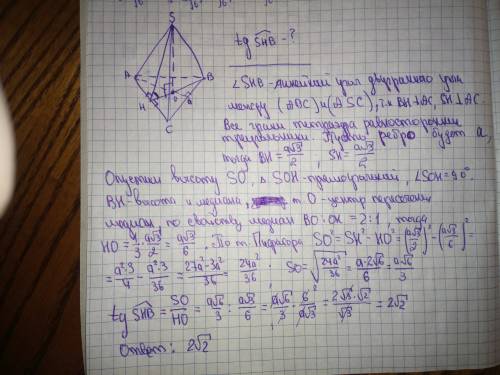 S
tg SHB - ?
A
B
H
O
C
∠SHB - линейный угол двугранного угла
между (ABC) и (ASC), т.к BH⊥AC, SH⊥AC.
Все грани тетраэдра равносторонние
треугольники. Пусть ребро будет a,
тогда BH = a√3/2, SH = a√3/2
Опустим высоту SO, △ SOH - прямоугольный, ∠SOH = 90°
BH - высота и медиана, т. O - центр пересечения
медиан по свойству медиан BO:OH = 2:1, тогда
HO = 1/3 · a√3/2 = a√3/6. По т. Пифагора SO² = SH² - HO² = (a√3/2)² - (a√3/6)² =
= a²·3/4 - a²·3/36 = 27a² - 3a²/36 = 24a²/36 ; SO = √24a²/36 = a·2√6/6 = a√6/3
tg SHB = SO/HO = a√6/3 : a√3/6 = a√6/3 · 6/a√3 = 2√3·√2/√3 = 2√2
Ответ: 2√2